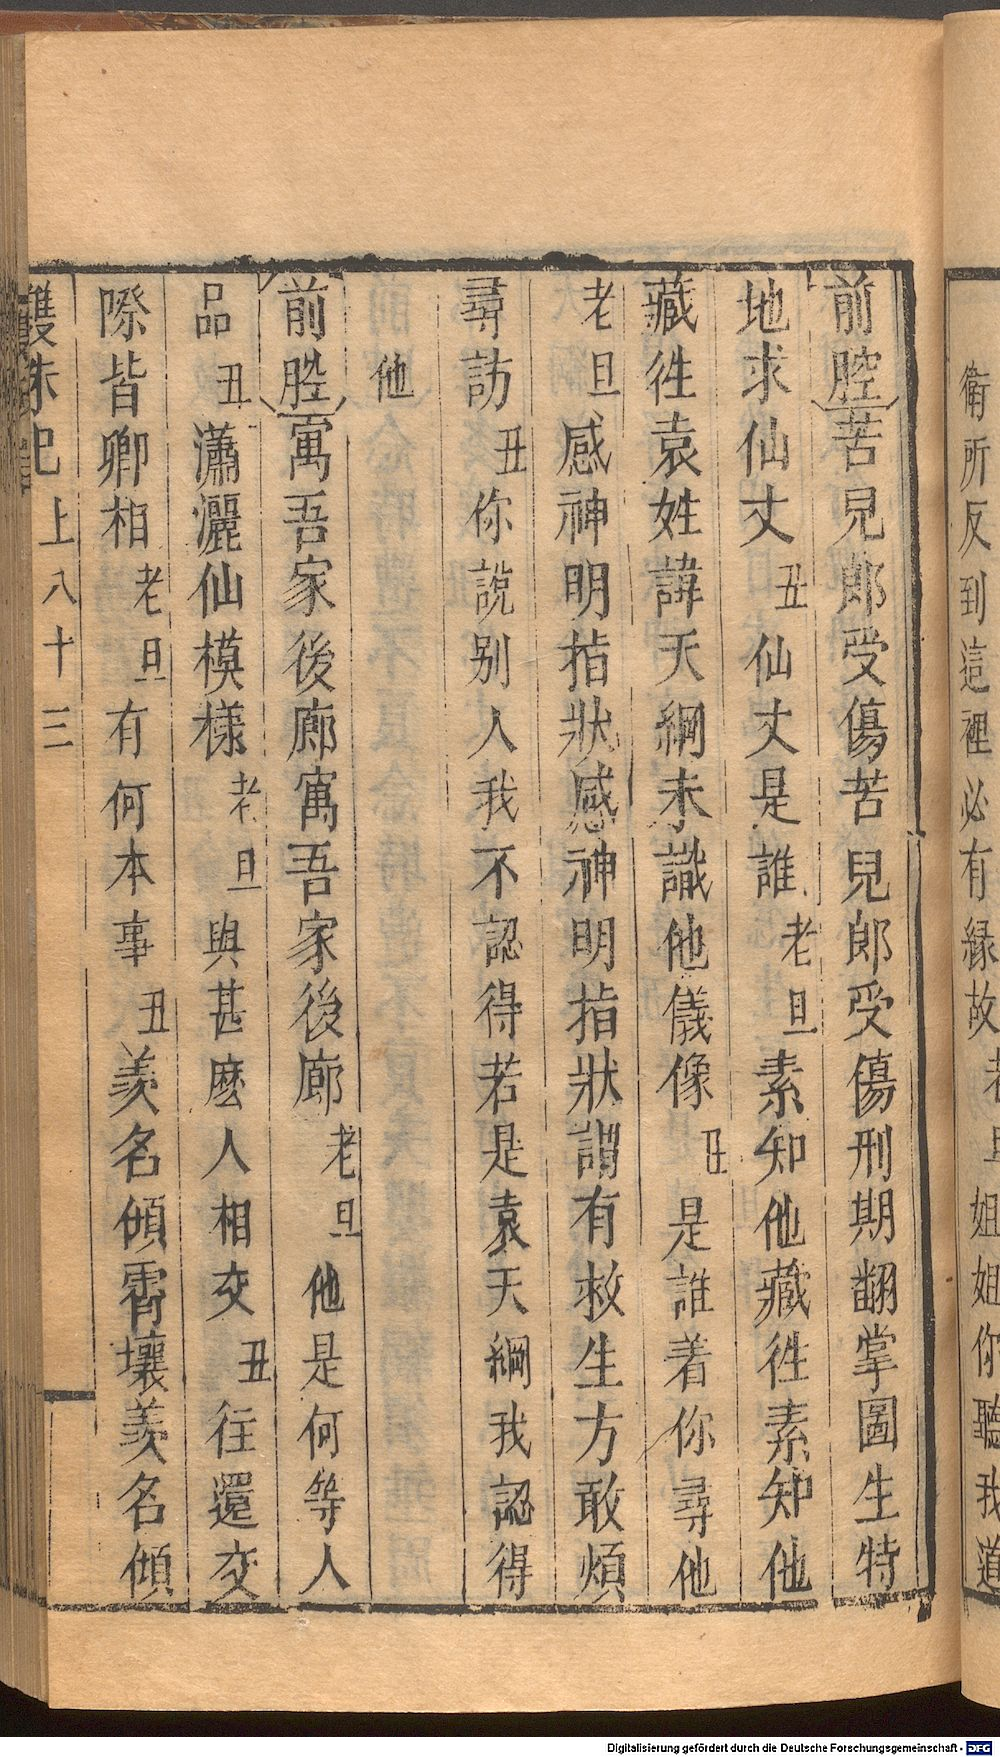 衛所反到這裡必有緣故老旦姐姐你聽我道
前腔苦兒郎受傷苦兒郎受傷刑期翻掌圖生特
地求仙丈丑仙丈是誰老旦素知他藏徃素知他
藏徃袁姓諱天綱未識他儀像丑是誰着你尋他
老旦感神明指狀感神明指狀謂有救生方敢煩
尋訪丑你說别人我不認得若是袁天綱我認得
他
前腔寓吾家後廊寓吾家後廊老旦他是何等人
品丑瀟灑仙模樣老旦與甚麽人相交丑往還交
際皆卿相老旦有何本事丑羨名傾霄壤羨名傾
雙珠記 上 八十三
Digitalisierung gefördert durch die Deutsche Forschungsgemeinschaft - DFG